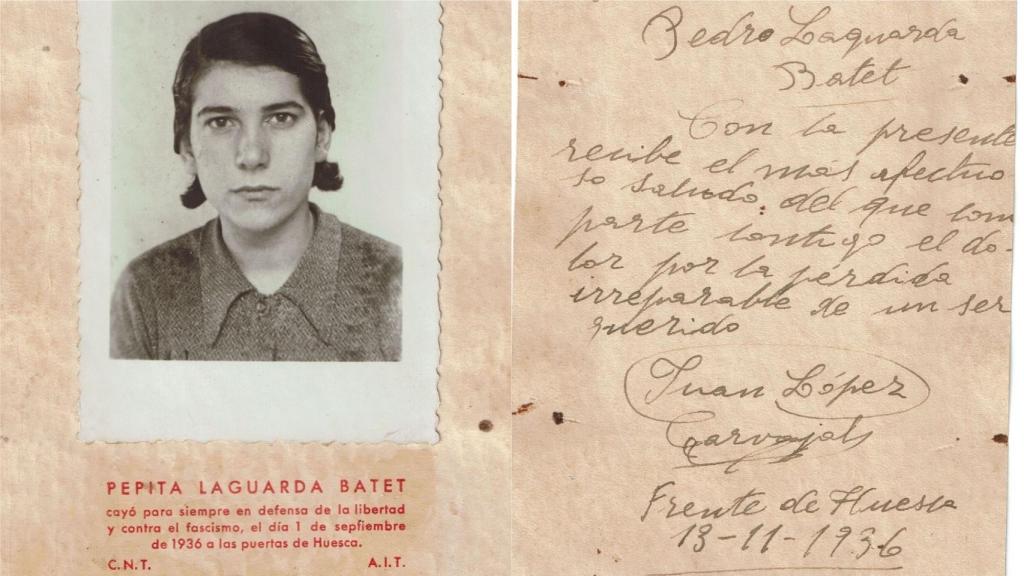 PEPITA LAGUARDA BATET
cayó para siempre en defensa de la libertad
y contra el fascismo, el día 1 de sepfiembre
de 1936 a las puertas de Huesca.
C.N.T. A.I.T.
Pedro Laguarda
Batet
Con la presente
recibe el más afectuo-
so saludo, del que com
parte contigo el do-
lor por la pérdida
irreparable de un ser
querido
Juan López
Carvajal
Frente de Huesca
13-11-1936